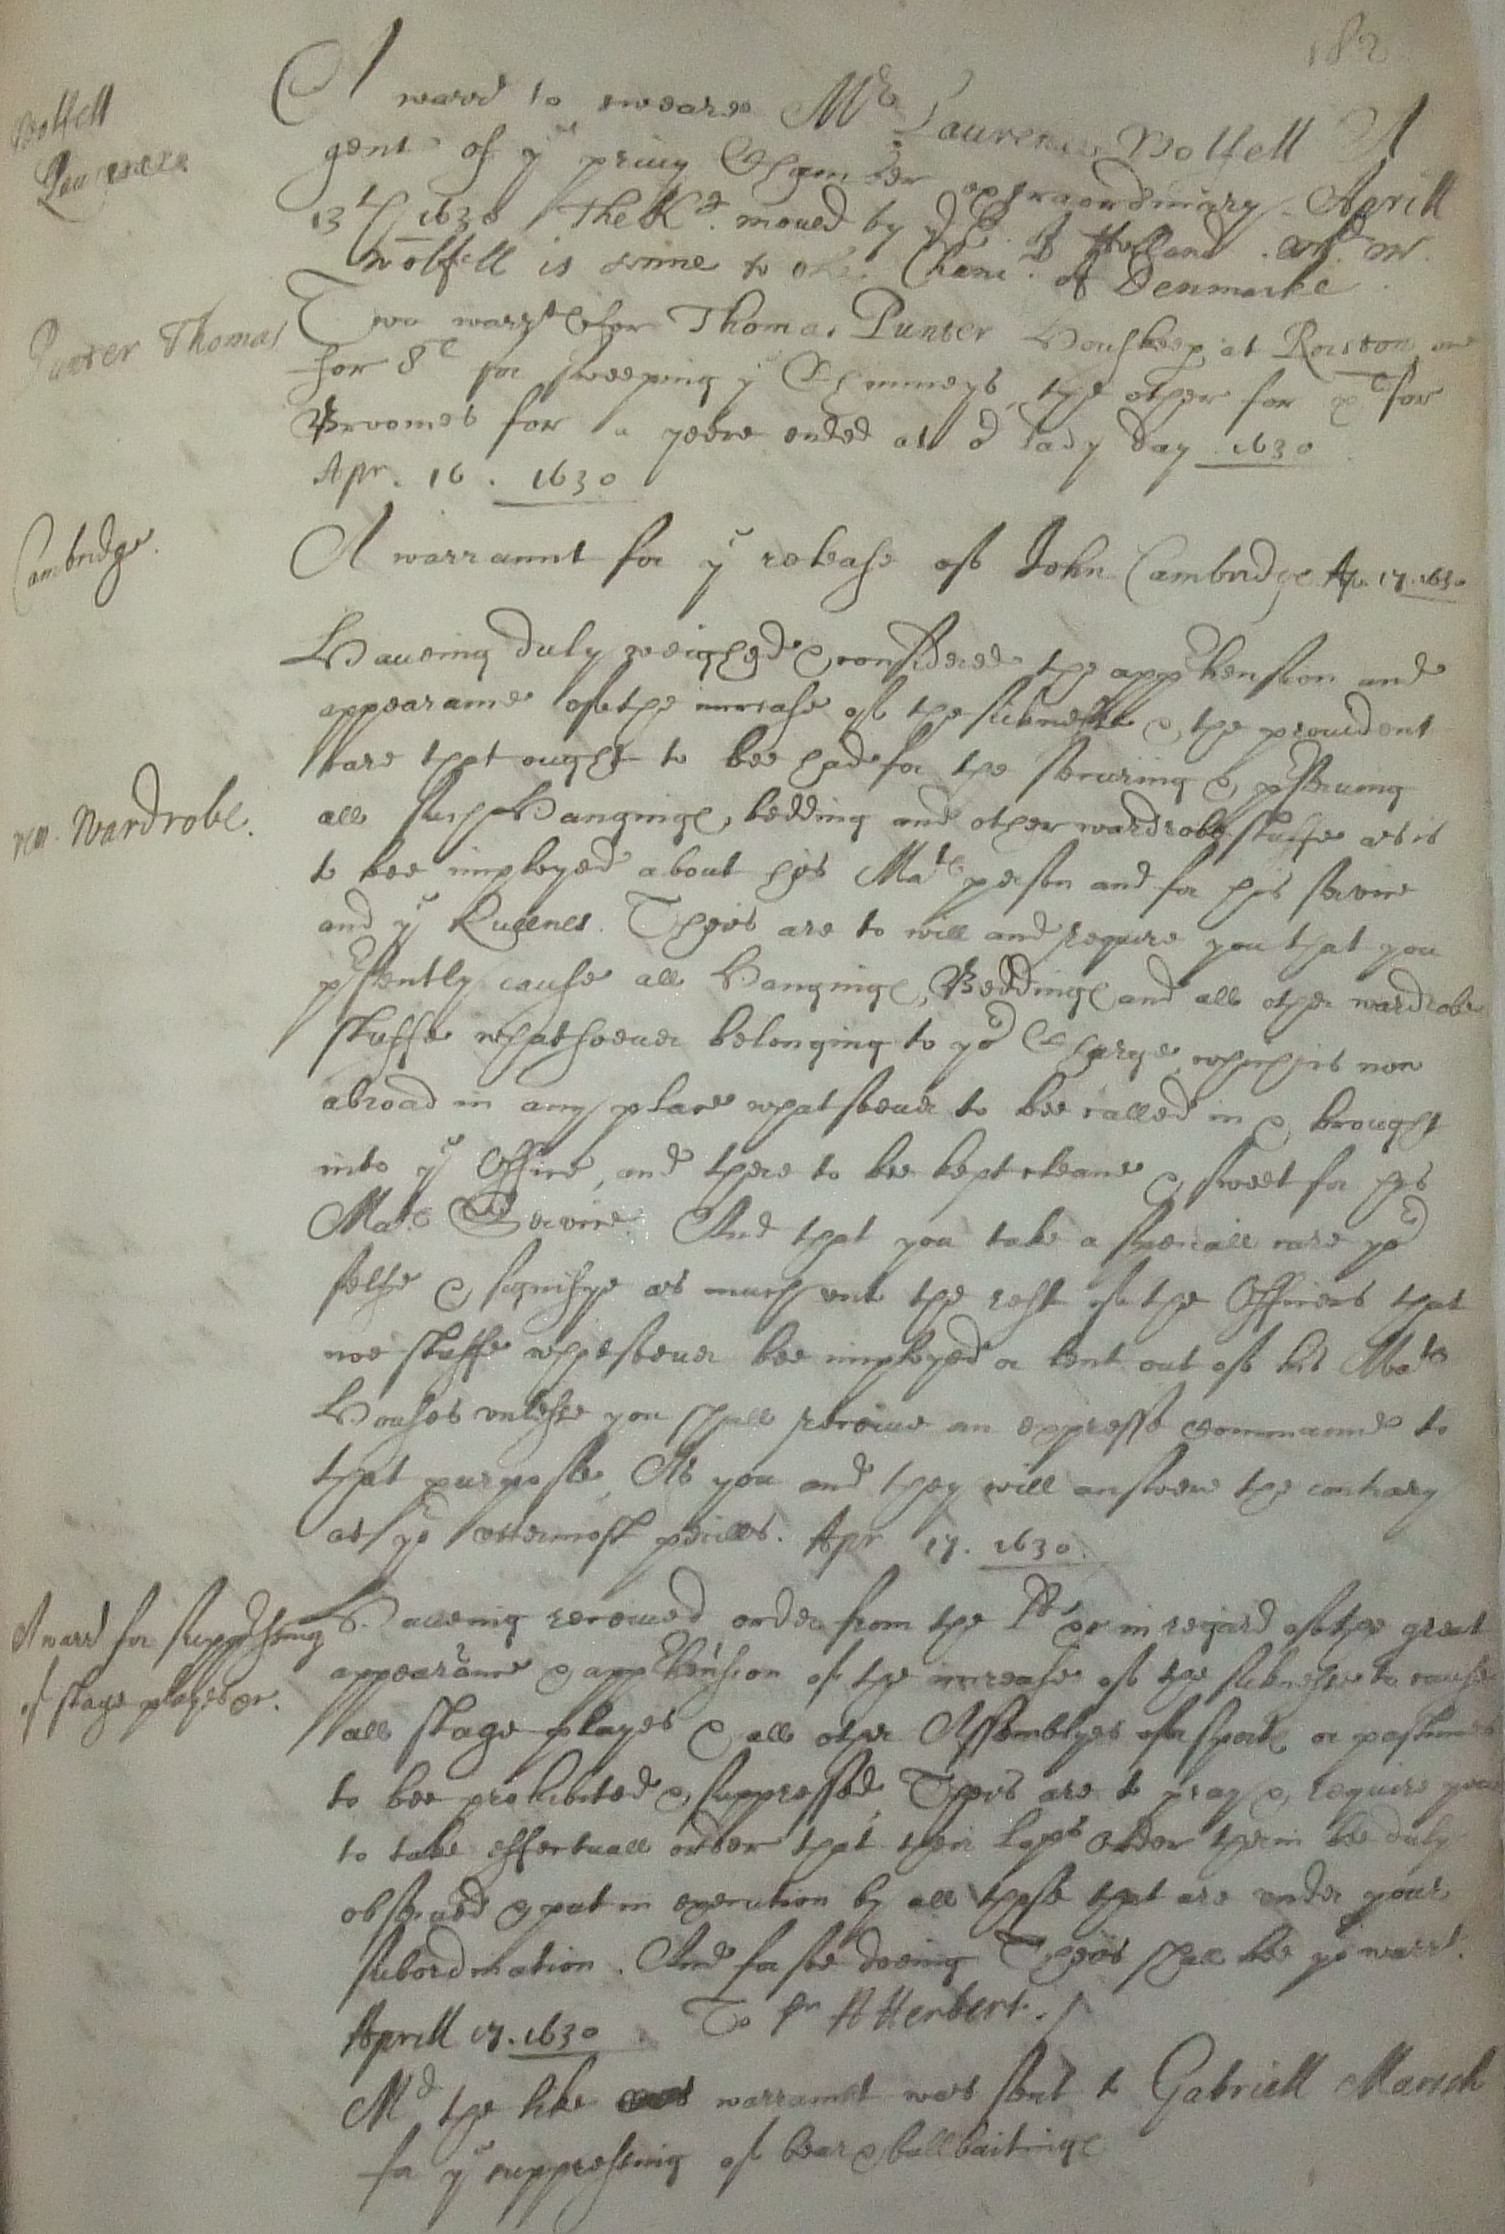 182
Wolfell
Laurence
A warrt to sweare Mr Laurence Wolfell A
gent of ye privy Chamber extraordinary Aprill
13th 1630 The K. moved by ye E. of Holland. wch Mr.
Wolfell is to Chanc. of Denmarke.
Punter Thomas
Two warrts for Thomas Punter Houskeep at Roiston, one
for 8l for sweeping ye Chimneys, the other for xl for
Broomes for a yeere ended at or Lady day 1630
Apr. 16. 1630
Cambridge.
A warrannt for ye release of John Cambridge Ap. 17. 1630
rem. Wardrobe.
Haueing duly weighed & considered the apprhension and
appearance of the increase of the sicknesse & the prouident
care that ought to bee had for the securing & prseruing
all such Hangings, bedding and other wardrobe stuffe as is
to bee imployed about his Mats person and for his seruice
and ye Queenes. Theis are to will and require you that you
prsently cause all Hangings, Beddings and all other wardrobe
stuffe whatsoeuer belonging to yor Charge, which is now
abroad in any place whatsoeuer to bee called in & brought
into ye Office, and there to bee kept cleane & sweet for his
Mats Seruice. And that you take a speciall care yor
selfe & signifye as much vnto the rest of the Officers that
noe stuffe whatsoeuer bee imployed or lent out of his Mats
Houses vnlesse you shall receiue an expresse commannd to
that purpose, As you and they will answere the contrary
at yor vttermost perills. Apr 17. 1630.
A warrt for suppressing
of stage playes &c.
Haueing receiued order from the Lls &c in regard of the great
appearance & apprhension of the increase of the sicknesse to cause
all stage playes & all other Assemblyes of sports or pastimes
to bee prohibited & suppressed, Theis are to pray & require you
to take effectuall order that their Lops Order therin bee duly
obserued & put in execution by all those that are vnder your
subordination. And for soe doeing Theis shall bee yor warrt.
Aprill 17. 1630. To Sr H Herbert.
Md the like warrannt was sent to Gabriell Marsh
for ye suppressing of beare & bullbaitings